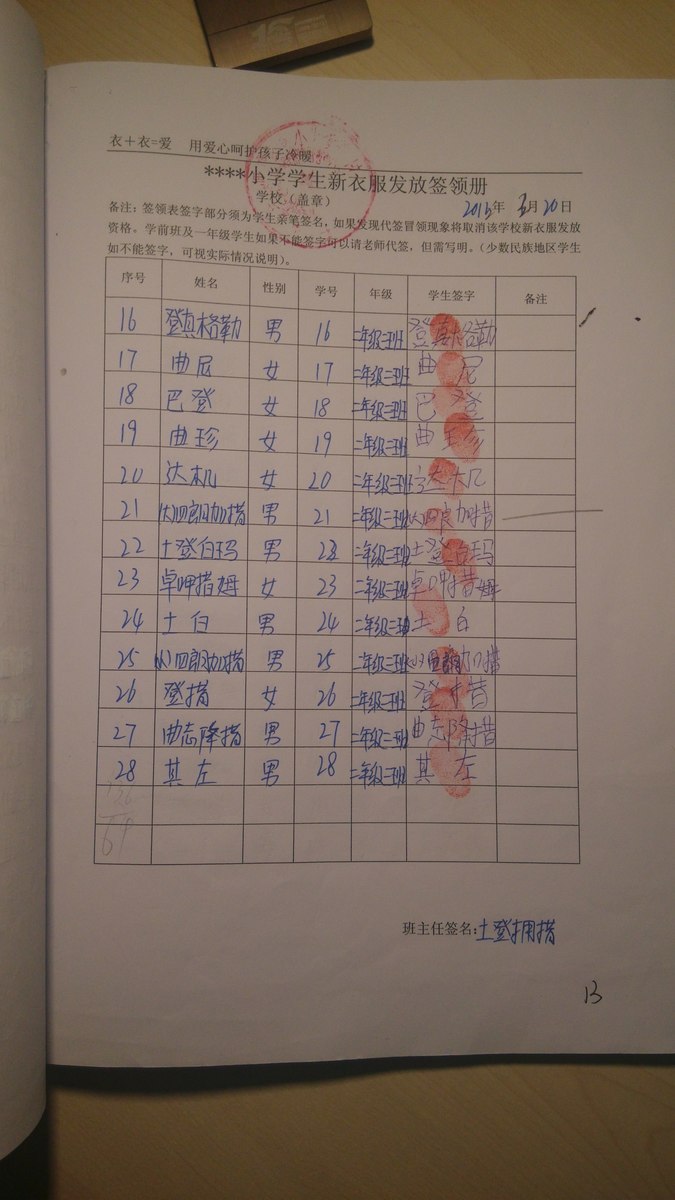 衣＋衣=爱 用爱心呵护孩子冷暖
****小学学生新衣服发放签领册
学校（盖章） 年 3月20日
备注：签领表签字部分须为学生亲笔签名，如果发现代签冒领现象将取消该学校新衣服发放
资格。学前班及一年级学生如果不能签字可以请老师代签，但需写明。（少数民族地区学生
如不能签字，可视实际情况说明）。
序号 姓名 性别 学号 年级 学生签字 备注
16 登真格勒 男 16 二年级二班 登真格勒
17 曲尼 女 17 二年级二班 曲尼
18 巴登 女 18 二年级二班 巴登
19 曲珍 女 19 二年级二班 曲珍
20 达机 女 20 二年级二班 达机
21 大四郎加措 男 21 二年级二班 大四良加措
22 土登白玛 男 22 二年级二班 土登白玛
23 卓呷措姆 女 23 二年级二班 卓呷措姆
24 土白 男 24 二年级二班 土白
25 小四郎加措 男 25 二年级二班 小四郎加措
26 登措 女 26 二年级二班 登措
27 曲志降措 男 27 二年级二班 曲志降措
28 其左 男 28 二年级二班 其左
班主任签名：土登拥措
13